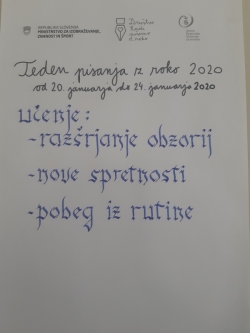 REPUBLIKA SLOVENIJA
MINISTRSTVO ZA IZOBRAŽEVANJE,
ZNANOST IN ŠPORT
Društvo
Radi
pišemo
z roko
Teden pisanja z roko 2020
od 20. januarja do 24. januarja 2020
učenje:
-razšrjanje obzorij
-nove spretnosti
-pobeg iz rutine